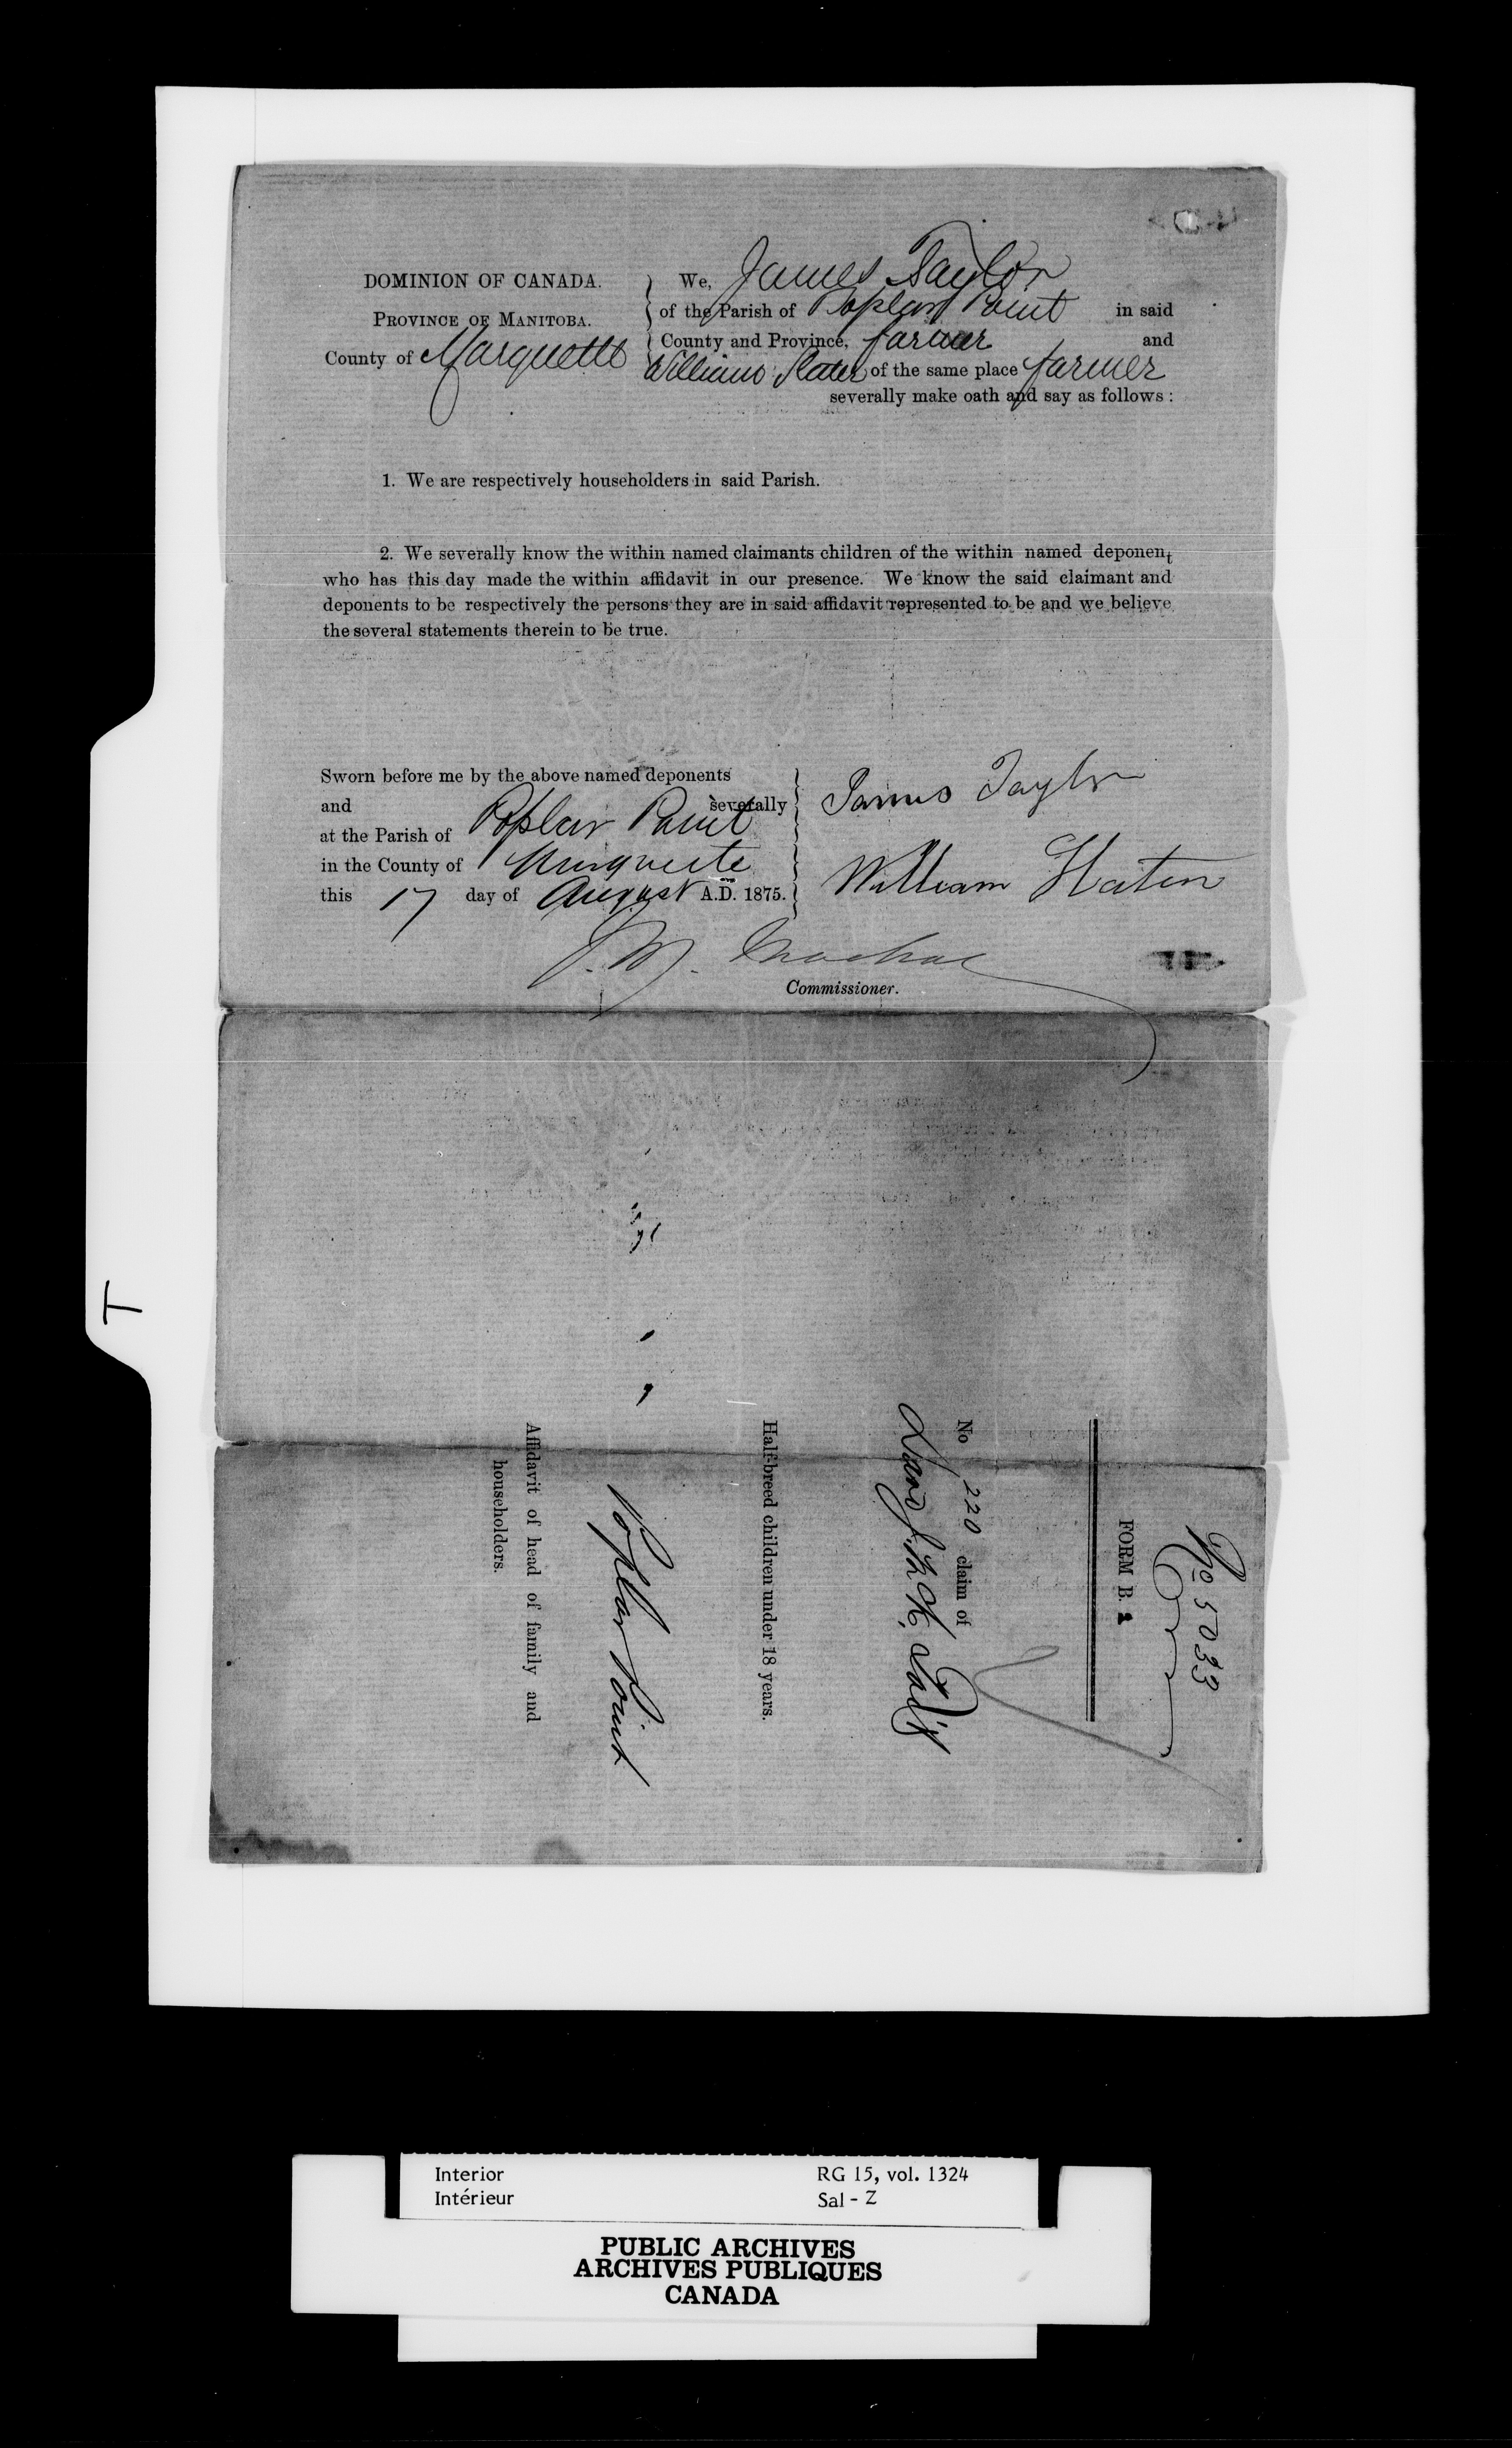 DOMINION OF CANADA.
PROVINCE OF MANITOBA.
County of Marquette
We, James Taylor
of the Parish of Poplar Point in said
County and Province, farmer and
William Slater of the same place farmer
severally make oath and say as follows :
1. We are respectively householders in said Parish.
2. We severally know the within named claimants children of the within named deponent
who has this day made the within affidavit in our presence. We know the said claimant and
deponents to be respectively the persons they are in said affidavit represented to be and we believe
the several statements therein to be true.
Sworn before me by the above named deponents
and severally
at the Parish of Poplar Point
in the County of Marquette
this 17 day of August A.D. 1875.
James Taylor
William Slater
J. M.
Commissioner.
No 5033
FORM B.
No 220 claim of
Half-breed children under 18 years.
Poplar Point
Affidavit of head of family and
householders.
T
Interior RG 15, vol. 1324
Intérieur Sal - Z
PUBLIC ARCHIVES
ARCHIVES PUBLIQUES
CANADA